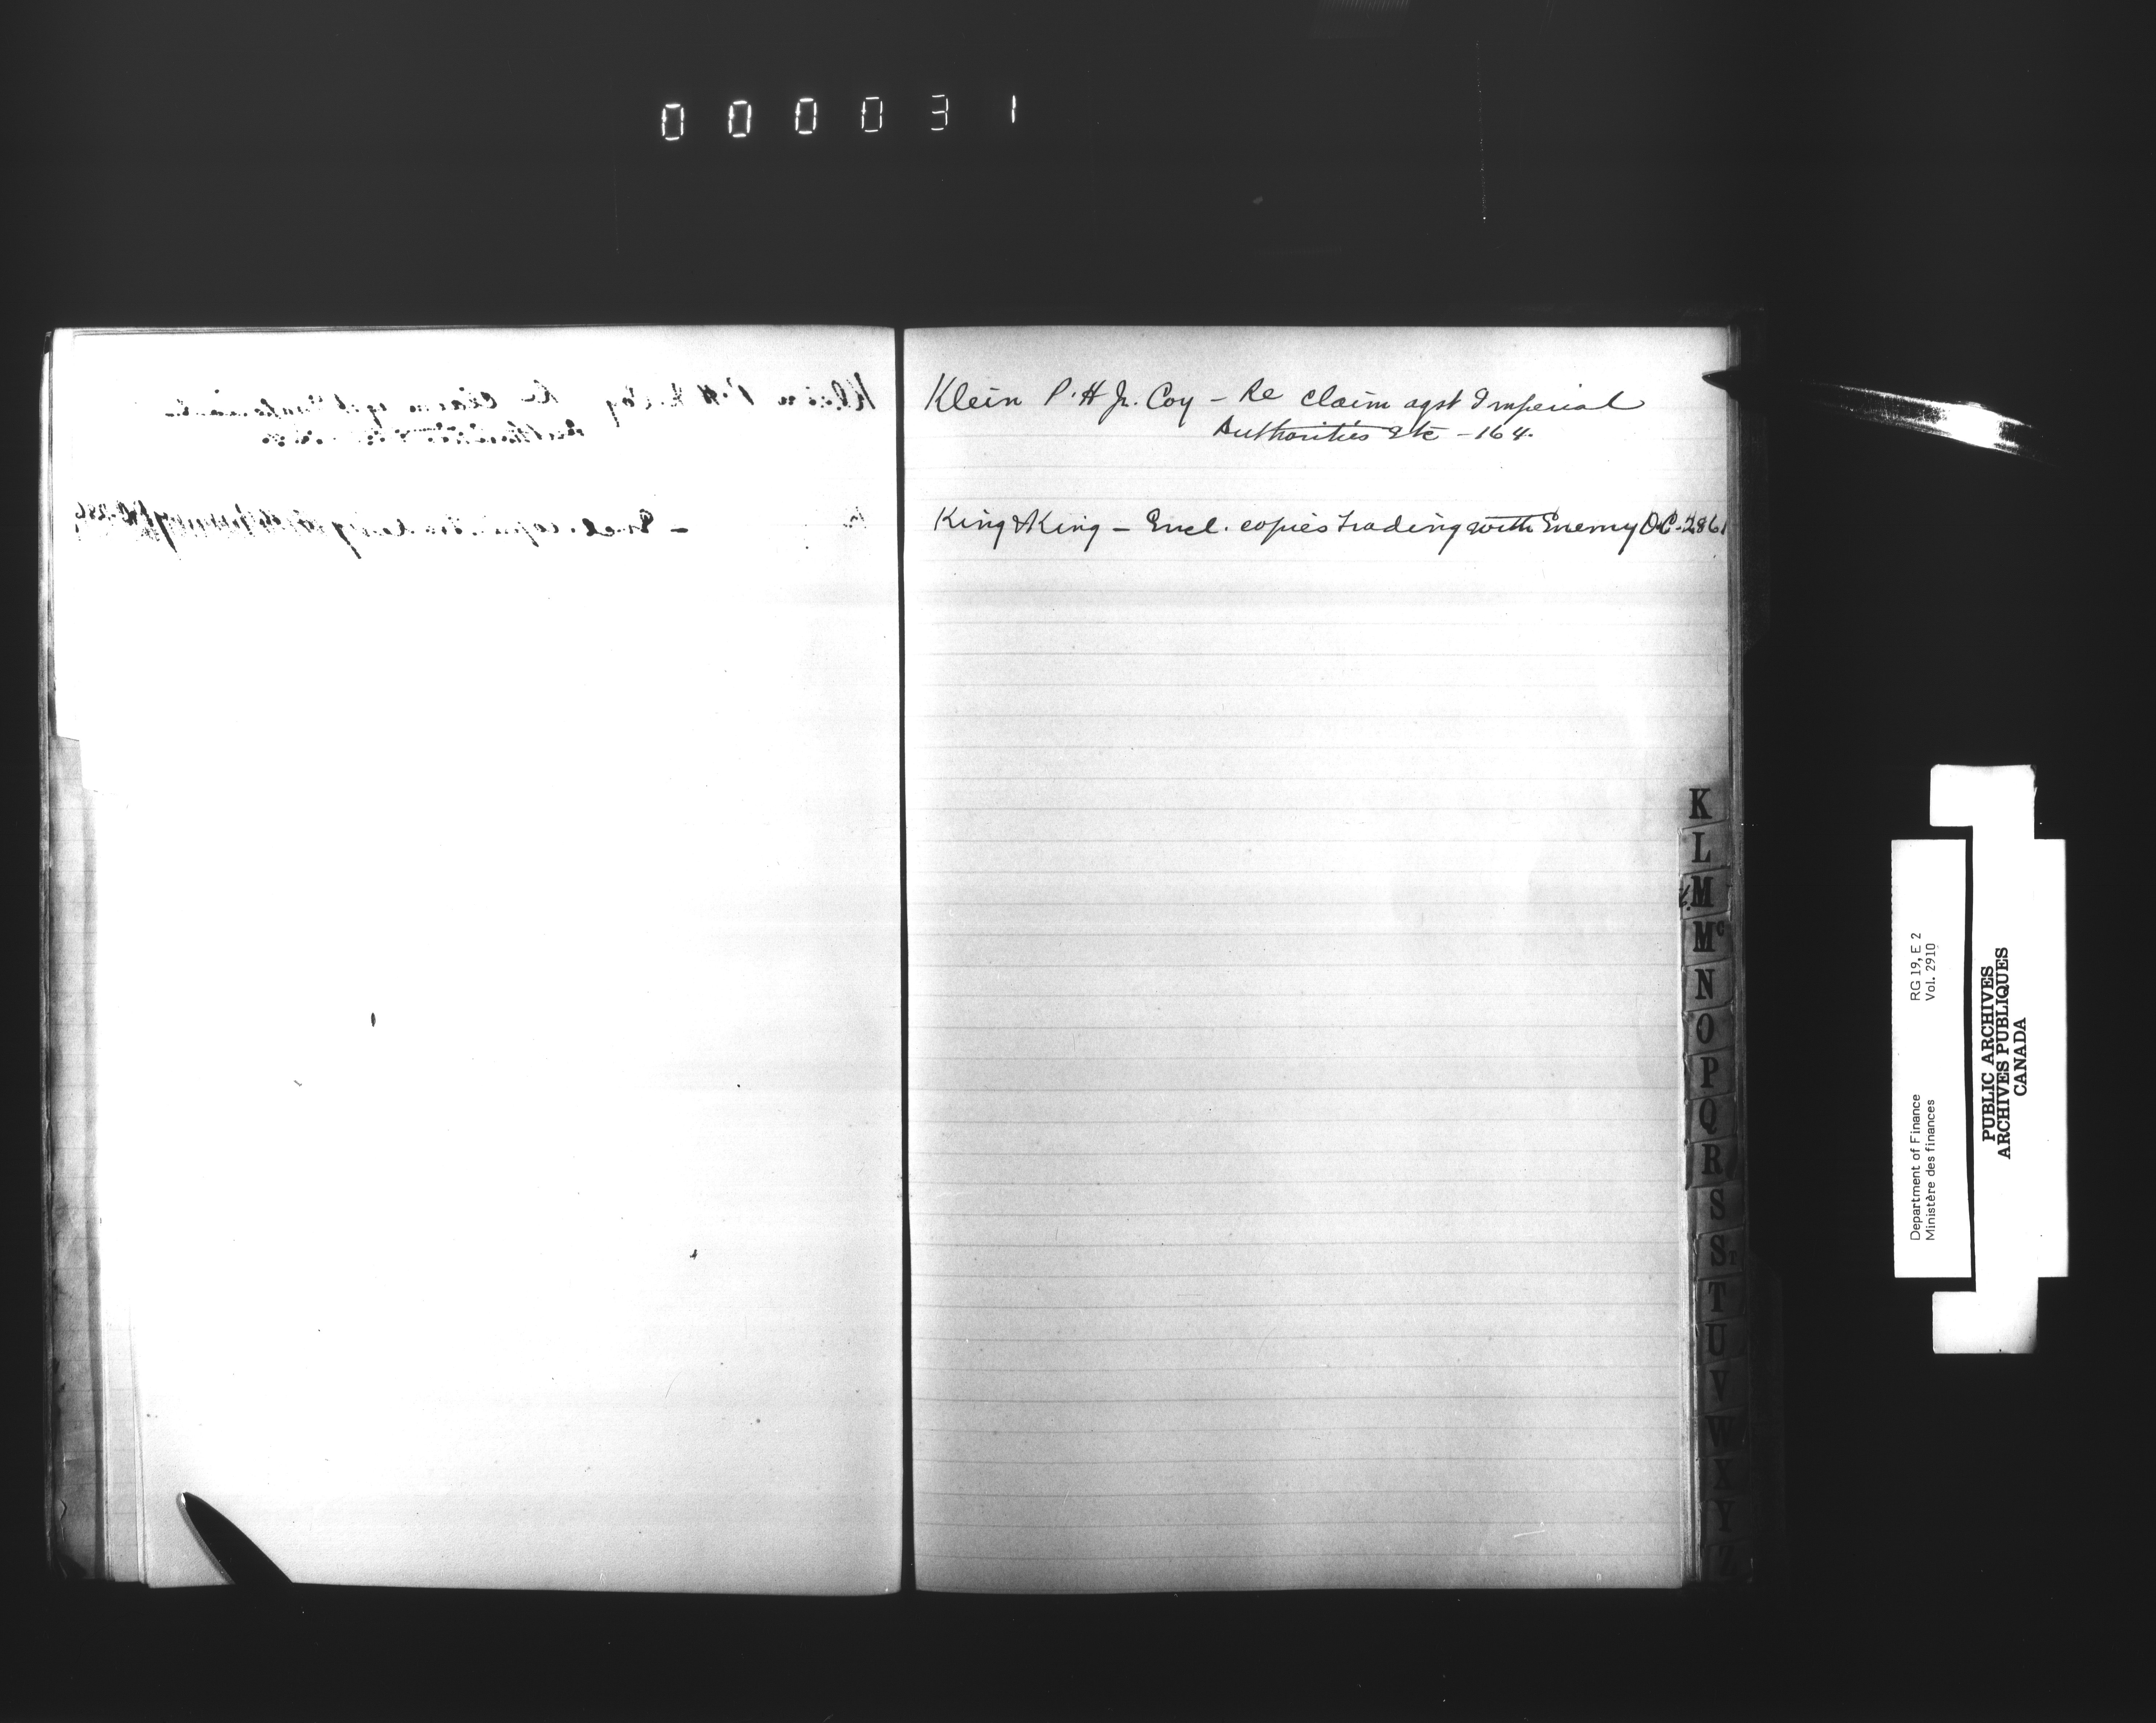 000031
Klein P. H Jr. Coy - Re claim agst Imperial
Authorities Etc - 164.
King & King - Encl. copies trading with Enemy O.C. 2861
K
L
M
Mc
N
O
P
Q
R
S
S
T
U
V
W
X
Y
Z
Department of Finance RG 19, E 2
Ministère des finances Vol. 2910
PUBLIC ARCHIVES
ARCHIVES PUBLIQUES
CANADA